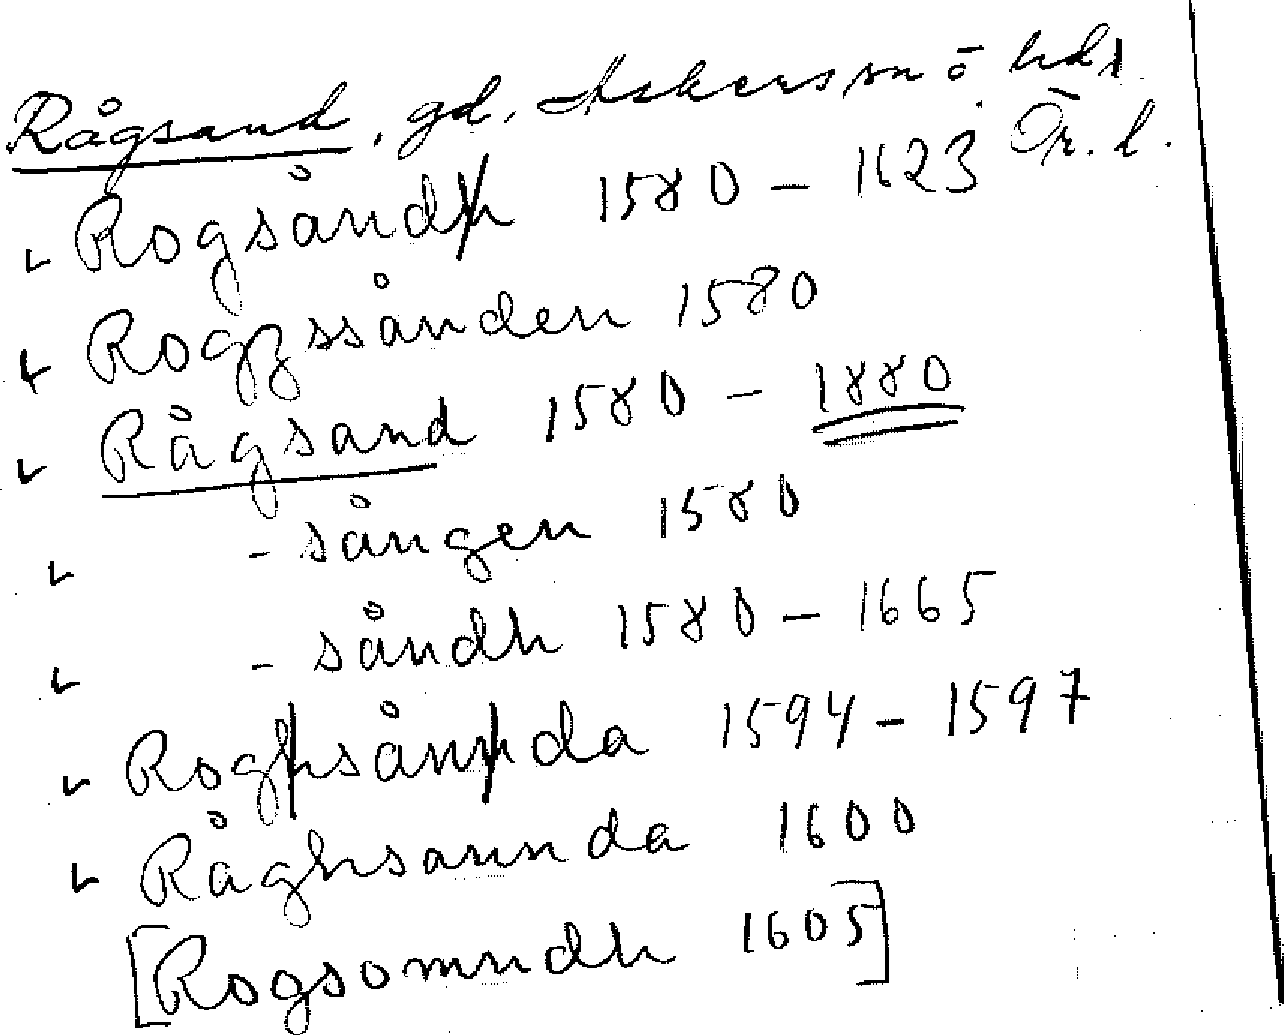 Rågsand, gd, Askers sn o hd,
Ör. l.
Rogsåndh 1580 - 1623
Roggssånden 1580
Rågsand 1580 - 1880
- sången 1580
- såndh 1580 - 1665
Roghsånnda 1594 - 1597
Råghsannda 1600
[Rogsomndh 1605]